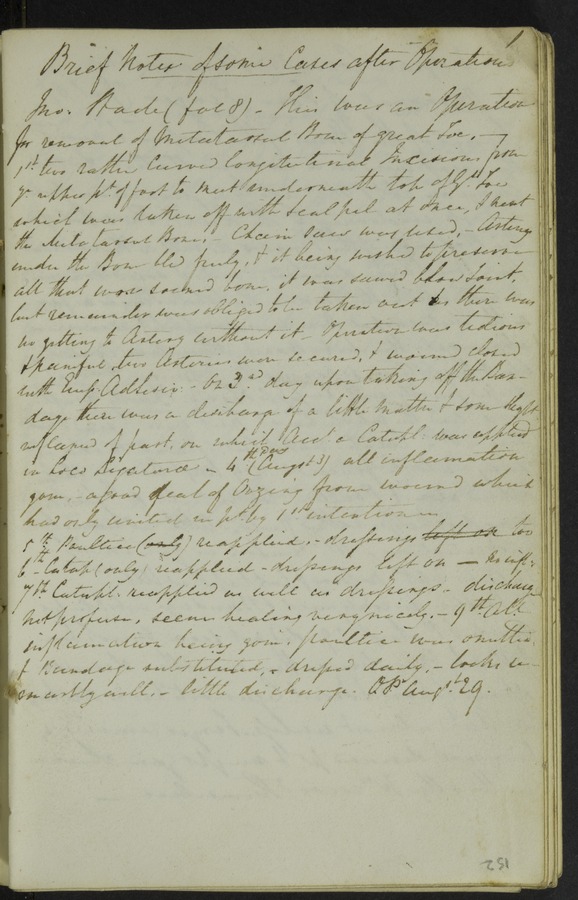 1
Brief Notes of some Cases after Operations
Jno. (fol 8) - This was an Operation
for removal of Metatarsal Bone of great Toe. -
1st two rather Curved longitudinal Incisions from
ye upper pt of foot to meet underneath Toe
which was taken off with Scalpel at once,
the Metatarsal Bone. - Chain Saw was used, - Artery
under the Bone bled freely, & it being wished to preserve
all that was sound bone, it was sawed
but remainder was obliged to be taken out as there was
no getting to Artery without it - Operation was tedious
& painful, two Arteries were secured, & wound closed
with Emp: Adhesiv: - On 3rd day upon taking off the Ban-
dage there was a discharge of a little matter & some slight
of part, on which a Catapl: was applied
in Loco - 4th Day (August 3) all inflammation
gone, - a good deal of Oozing from wound which
had only united in pt by 1st intention -
5th Poultice (only) reapplied, - dressings left on too
6th - Catap (only) reapplied - dressings left on -
7th Catapl: reapplied as well as dressings - discharge
not profuse, seems healing very nicely. - 9th All
inflammation being gone, poultice was omitted
& Bandage substituted, - dressed daily, - looks re-
markably well, - little discharge. Augst 29.
152